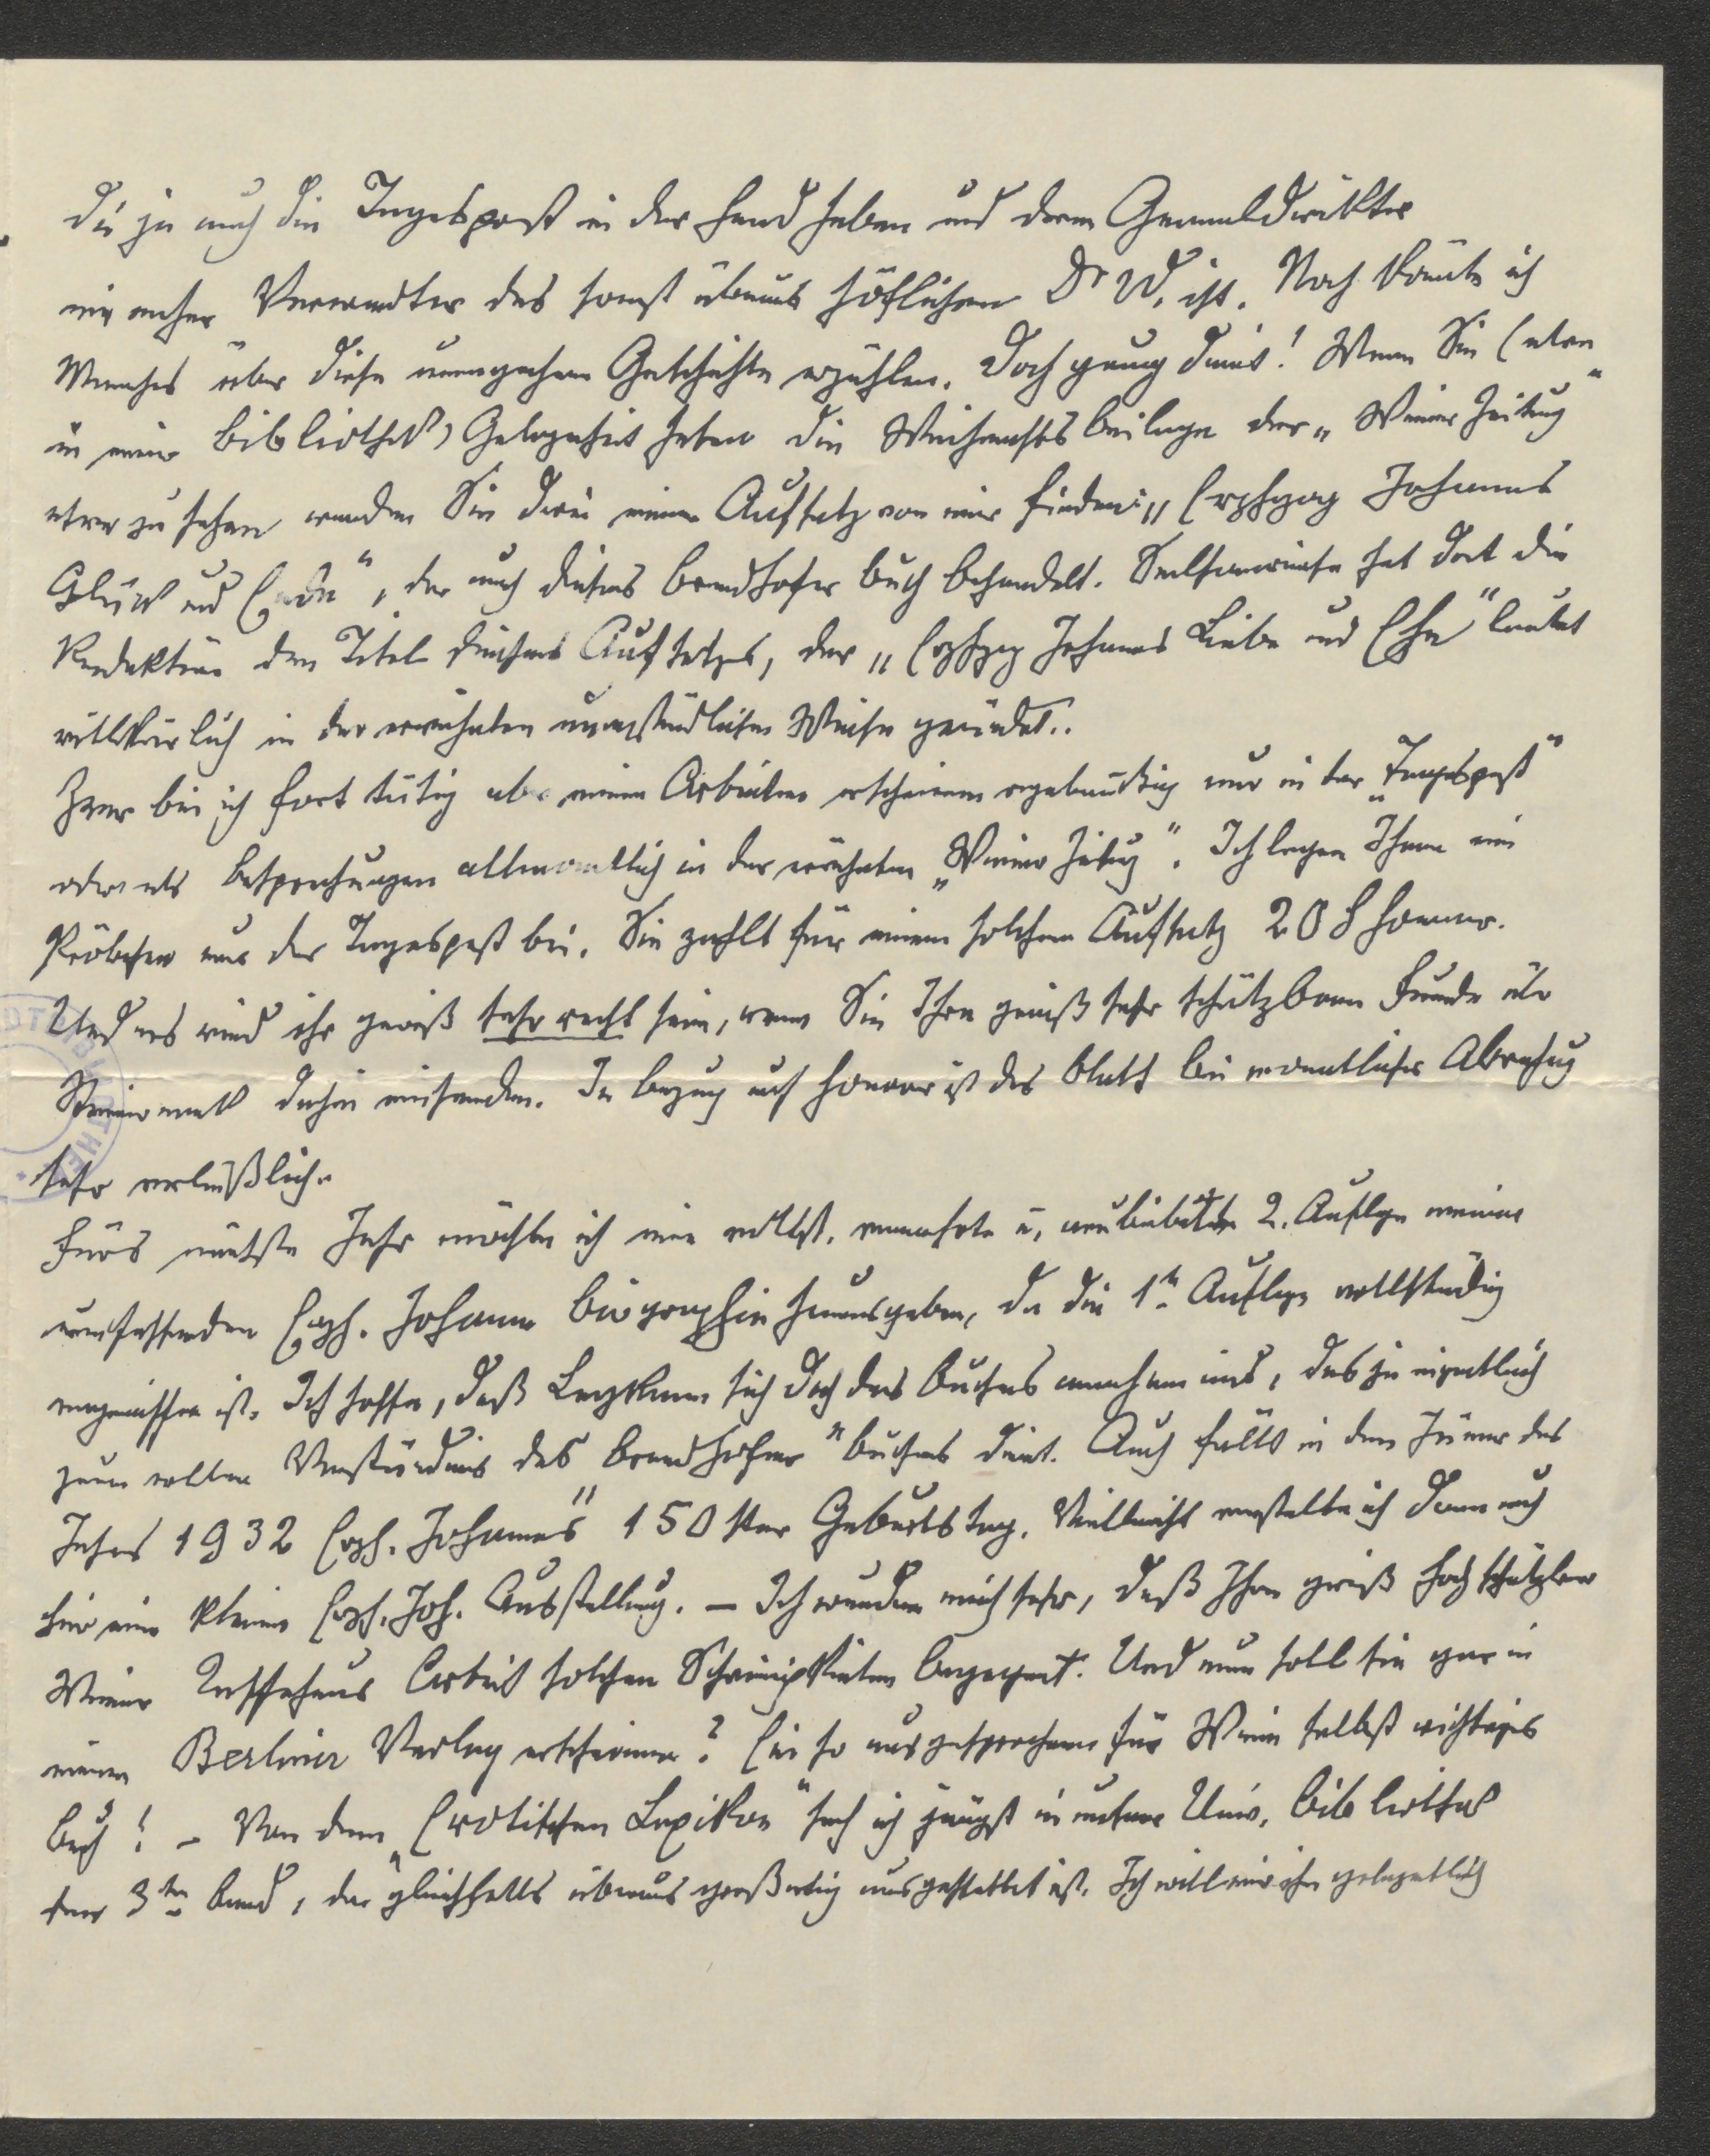 die ja auch die Tagespost in der Hand haben und deren Generaldirektor
ein naher Verwandter des sonst überaus höflichen Dr W. ist. Noch könnte ich
Manches über diese unangenehme Geschichte erzählen. Doch genug damit! Wenn Sie (etwa
in einer Bibliothek) Gelegenheit haben die Weihnachtsbeilage der „Wiener Zeitung"
etwa zu sehen werden Sie darin einen Aufsatz von mir finden: „Erzherzog Johanns
Glück und Ende", der auch dieses Brandhofer Buch behandelt. Seltsamerweise hat dort die
Redaktion den Titel dieses Aufsatzes, der „Erzherzog Johanns Liebe und Ehe" lautet
willkürlich in der erwähnten unverständlichen Weise geändet..
Zwar bin ich fort tätig aber meine Arbeiten erscheinen nur in der „Tagespost"
oder als Besprechungen allmonatlich in der erwähnten „Wiener Zeitung". Ich lege Ihnen ein
Pröbchen aus der Tagespost bei. Sie zahlt für einen solchen Aufsatz 20 S Honorar.
Und es wird ihr gewiß sehr recht sein, wenn Sie Ihre gewiß sehr schätzbaren Funde über
Steiermark dahin einsenden. In Bezug auf Honorar ist das Blatt bei monatlicher Abrechnung
sehr verläßlich.
Fürs nächste Jahr möchte ich eine vollst. vermehrte u. neubearbeitete 2. Auflage meiner
umfassenden Erzh. Johann Biographie herausgeben, da die 1te Auflage vollständig
vergriffen ist. Ich hoffe, daß Leykam sich doch des Buches annehmen wird, das ja eigentlich
zum vollen Verständnis des Brandhofer "Buches dient. Auch fällt in den Jänner des
Jahres 1932 Erzh. Johanns" 150ster Geburtstag. Vielleicht veranstalte ich dann auch
hier eine kleine Erzh. Joh. Ausstellung. – Ich wundere mich sehr, daß Ihre gewiß hoch schätzbare
Wiener Arbeit solchen Schwierigkeiten begegnet. Und nun soll sie gar in
einem Berliner Verlag erscheinen? Ein so ausgesprochen für Wien selbst wichtiges
Buch! – Von dem „Erotischen Lexikon" sah ich jüngst in unserer Univ. Bibliothek
den 3ten Band, der gleichfalls überaus großartig ausgestattet ist. Ich will mir ihn gelegentlich